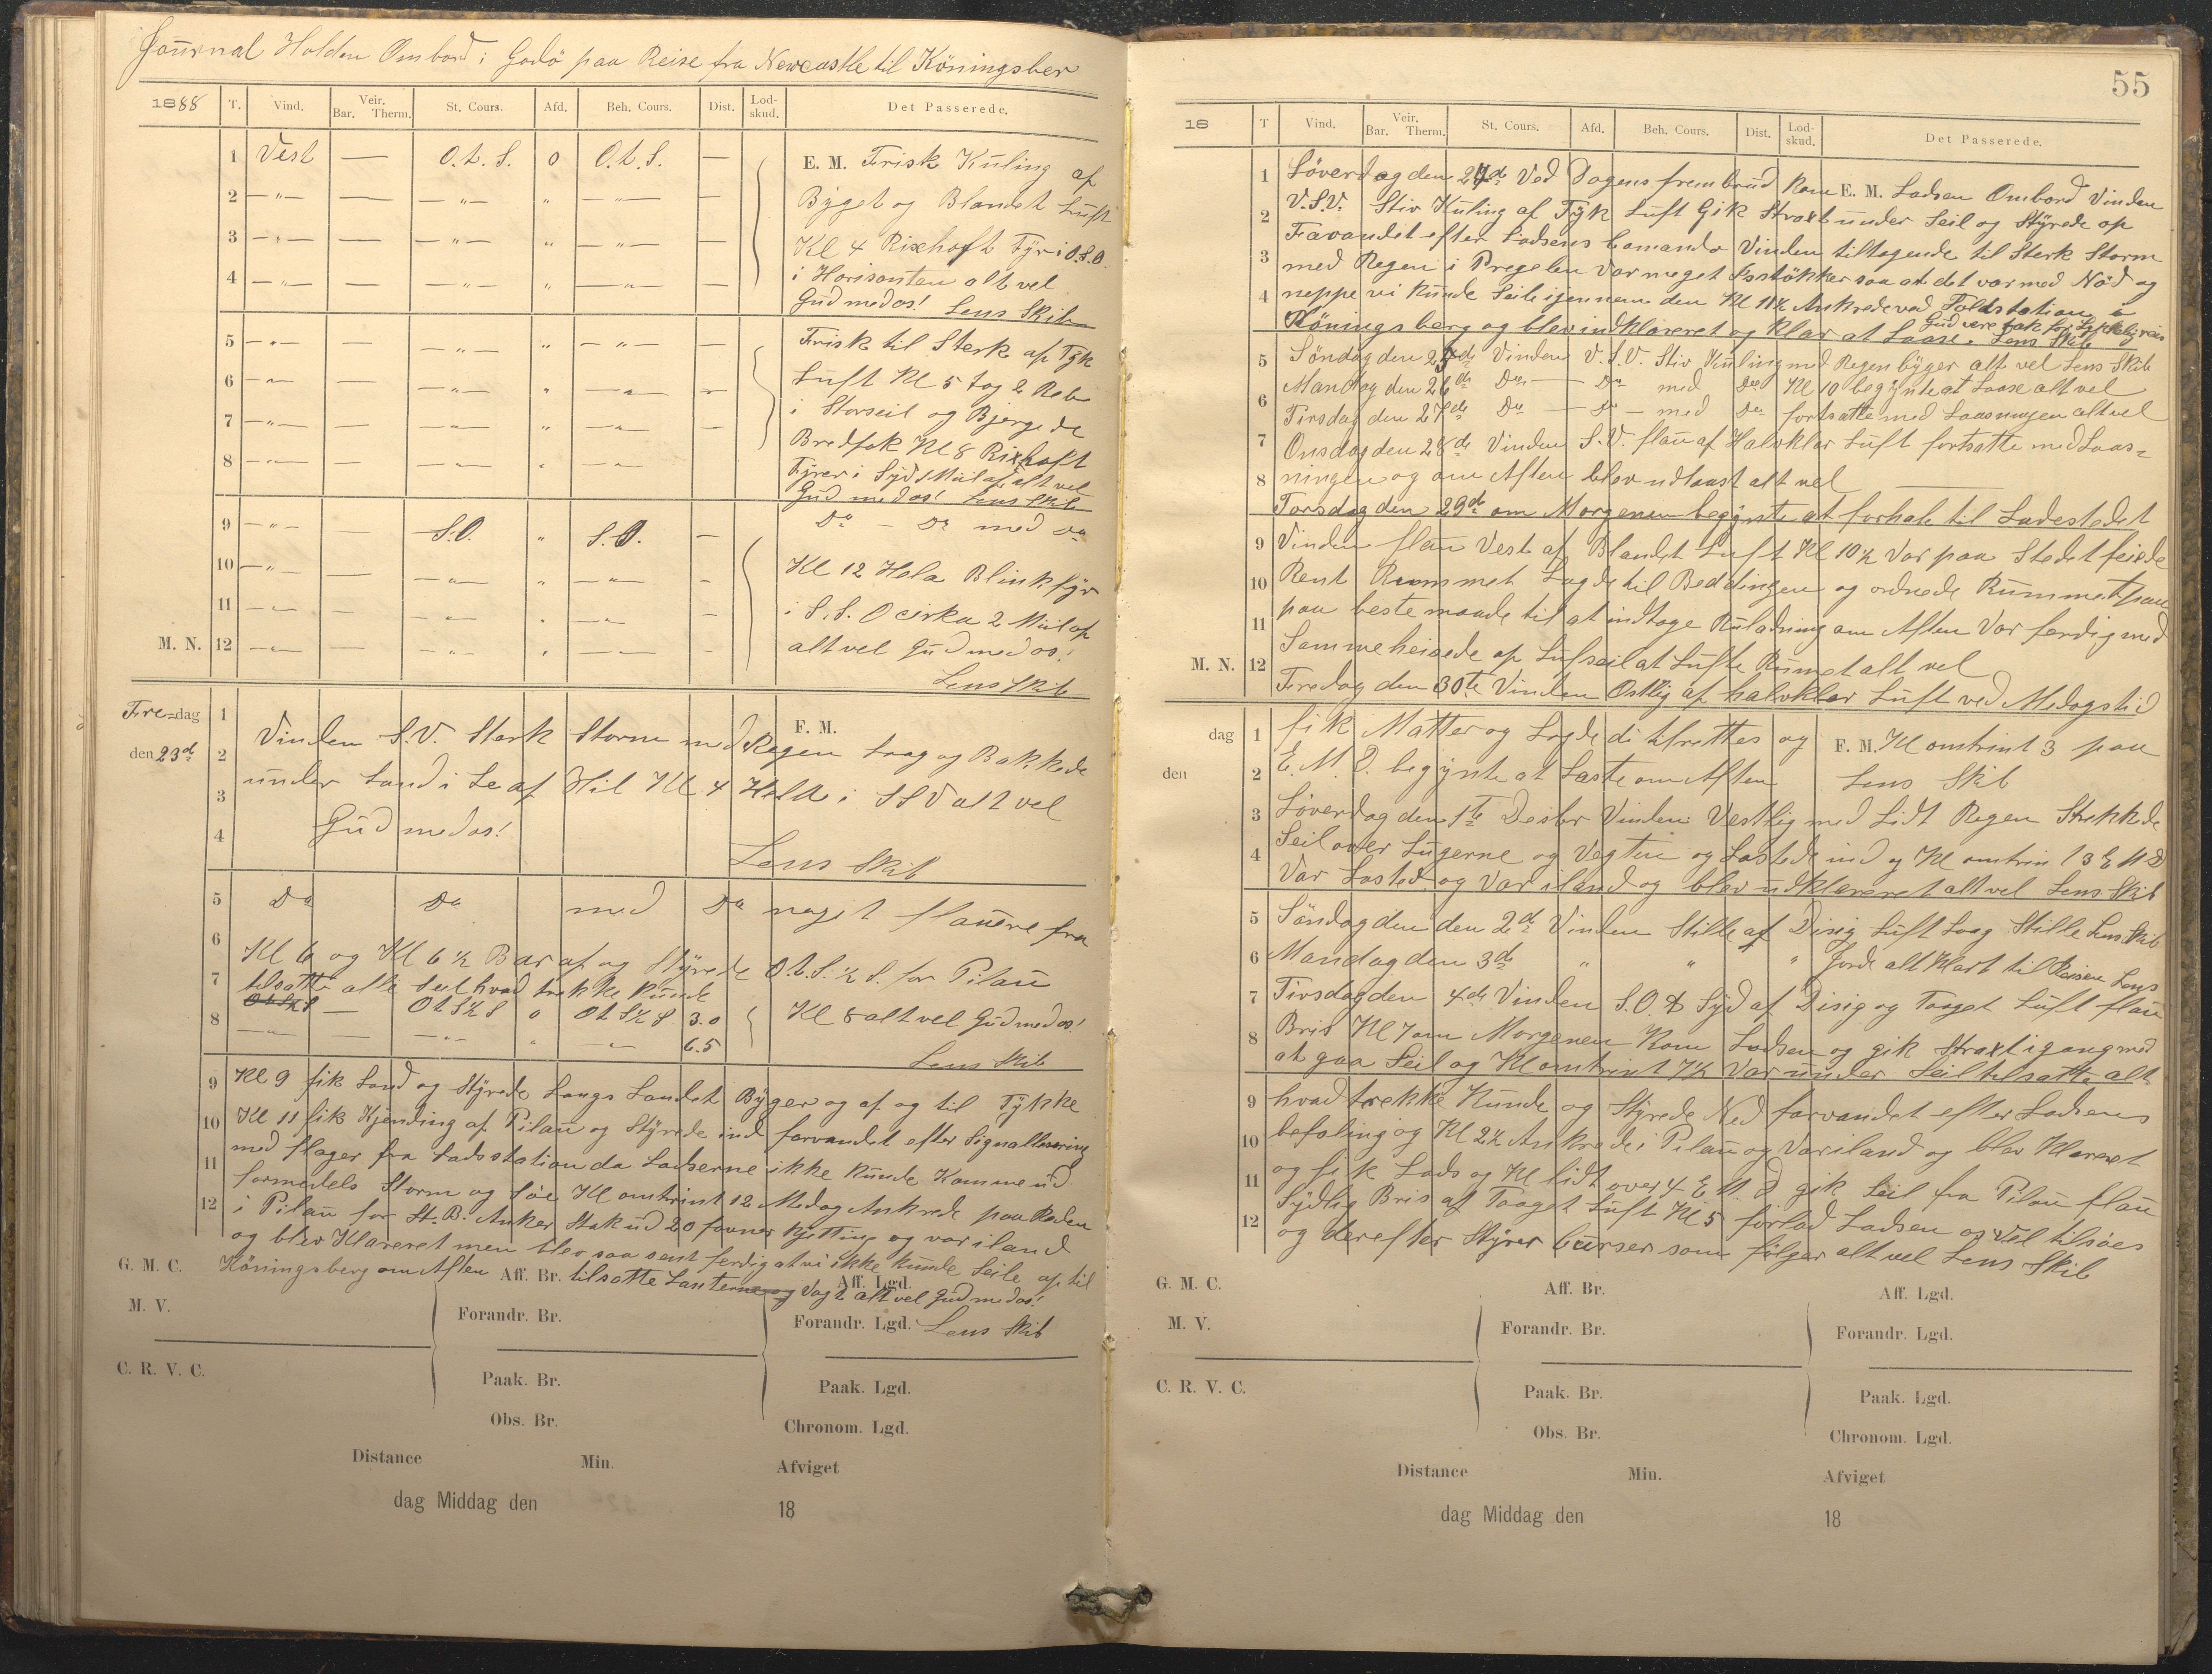 Journal Holden Ombord i Godö paa Reise fra Newcastle til Köningsber
1888 T. Vind. Veir. Bar. Therm. St. Cours. Afd. Beh. Cours. Dist. Lod-skud. Det Passerede.
1 Vest — O.t.S. 0 O.t.S. — E. M. Frisk Kuling af
2 —"— — —"— " —"— — Byget og Blandet Luft
3 —"— — —"— " —"— — Kl 4 Rixhoft Fyr i O.S.O.
4 —"— — —"— " —"— — i Horisonten alt vel
Gud med os! Lens Skib
5 —"— — —"— " —"— — Frisk til Sterk af Tyk
6 —"— — —"— " —"— — Luft Kl 5 tog 2 Reb
7 —"— — —"— " —"— — i Storseil og Bjergede
8 —"— — —"— " —"— Bredfok Kl 8 Rixhoft
Fyrer i Syd 1 Miil af alt vel
Gud med os! Lens Skib
9 —"— — S.O. " S.O. — Do — Do med Do
10 —"— — —"— " —"— — Kl 12 Hela Blinkfyr
11 —"— — —"— " —"— — i S.S.O cirka 2 Miil af
M. N. 12 —"— — —"— " —"— — alt vel Gud med os!
Lens Skib
Fre-dag 1 F. M.
den 23d 2 Vinden S.V. Sterk Storm med Regen trag og Bakkede
3 under Land i Le af Hil Kl 4 Hella i SSV alt vel
4 Gud med os!
Lens Skib
5 Do Do med Do noget flauere fra
6 Kl 6 og Kl 6 ½ Bar af og Styrede O.t.S. ½ S. for Pilau
7 tilsatte alle Seil hvad trekke kunde
8 — OtS½S 0 OtS½S 3.0 Kl 8 alt vel Gud med os!
—"— — —"— " —"— 6.5
Lens Skib
9 Kl 9 fik Land og Styrede Langs Landet Byger og af og til Tykke
10 Kl 11 fik Kjending af Pilau og Styrede ind farvandet efter Signallesering
11 med flager fra Lodsstation da Lodserne ikke Kunde Komme ud
formedels Storm og Söe Kl omtrint 12 Medag Ankrede paa Reden
12 i Pilau for St. B. Anker Stak ud 20 favner Kjetting og var iland
og blev Klareret men blev saa sent ferdig at vi ikke kunde Seile op til
G. M. C. Köningsberg om Aften Aff. Br. tilsatte Lanterne og Vagt Aff. Lgd. alt vel Gud med os!
M. V. Forandr. Br. Forandr. Lgd. Lens Skib
C. R. V. C. Paak. Br. Paak. Lgd.
Obs. Br. Chronom. Lgd.
Distance Min. Afviget
dag Middag den 18
55
18 T Vind. Veir. Bar. Therm. St. Cours. Afd. Beh. Cours. Dist. Lod-skud. Det Passerede.
1 Löverdag den 24de Ved Dagens frembrud kom E. M. Lodsen Ombord Vinden
2 V.S.V. Stiv Kuling af Tyk Luft Gik Straxt under Seil og Styrede op
Favandet efter Lodsens Comando Vinden tiltagende til Sterk Storm
3 med Regen i Pregelen var meget Isstökker saa at det var med Nöd og
4 neppe vi kunde Seile igjennem den Kl 11½ Ankrede ved Toldstation i
Köningsberg og blev indklareret og klar at Laase. Gud vere tak for Lykkelig reis Lens Skib
5 Söndag den 25de Vinden V.S.V. Stiv Kuling med Regen byger alt vel Lens Skib
6 Mandag den 26de Do — Do med Do Kl 10 begynte at Laase alt vel
Tirsdag den 27de Do — Do — med Do fortsatte med Laasningen alt vel
7 Onsdag den 28de Vinden S.V. flau af Halvklar Luft fortsatte med Laas-
8 ningen og om Aften blev udlaast alt vel
Torsdag den 29de om Morgenen begynte at forhale til Ladestedet
9 Vinden flau Vest af Blandet Luft Kl 10½ Var paa Stedet feiede
10 Rent Rummet Lagde til Beddingen og ordnede Rummet paa
11 paa beste maade til at indtage Ruladning om Aften Var ferdig med
Samme heisede op Lufseil at Lufte Rumet alt vel
M. N. 12 Fredag den 30te Vinden Ostlig af halvklar Luft ved Medagstid
dag 1 fik Matter og Lagde di tilrettes og F. M. Kl omtrint 3 paa
den 2 E.M.D. begynte at Laste om Aften Lens Skib
3 Löverdag den 1te Desbr Vinden Vestlig med Lidt Regen Strekkede
4 Seil over Lugerne og Vegtin og Lastede ind og Kl omtrin 13 E M D
Var Lasted og Var iland og blev udklareret alt vel Lens Skib
5 Söndag den den 2de Vinden Stille af Disig Luft Laag Stille Lens Skib
6 Mandag den 3de " " " Jorde alt Klart til Reisen Lens
7 Tirsdag den 4de Vinden S.O. & Syd af Disig og Taaget Luft flau
8 Bris Kl 7 om Morgenen Kom Lodsen og gik Straxt igang med
at gaa Seil og Kl omtrint 7½ Var under Seil tilsatte alt
9 hvad trekke Kunde og Styrede Ned farvandet efter Lodsens
10 befaling og Kl 2½ Ankrede i Pilau og Var iland og blev Klareret
11 og fik Lods og Kl lidt over 4 E M D gik Seil fra Pilau flau
Sydlig Bris af Taaget Luft Kl 5 forlod Lodsen os Vel tilsöes
12 og derefter Styrer Curser som fölger alt vel Lens Skib
G. M. C. Aff. Br. Aff. Lgd.
M. V. Forandr. Br. Forandr. Lgd.
C. R. V. C. Paak. Br. Paak. Lgd.
Obs. Br. Chronom. Lgd.
Distance Min. Afviget
dag Middag den 18